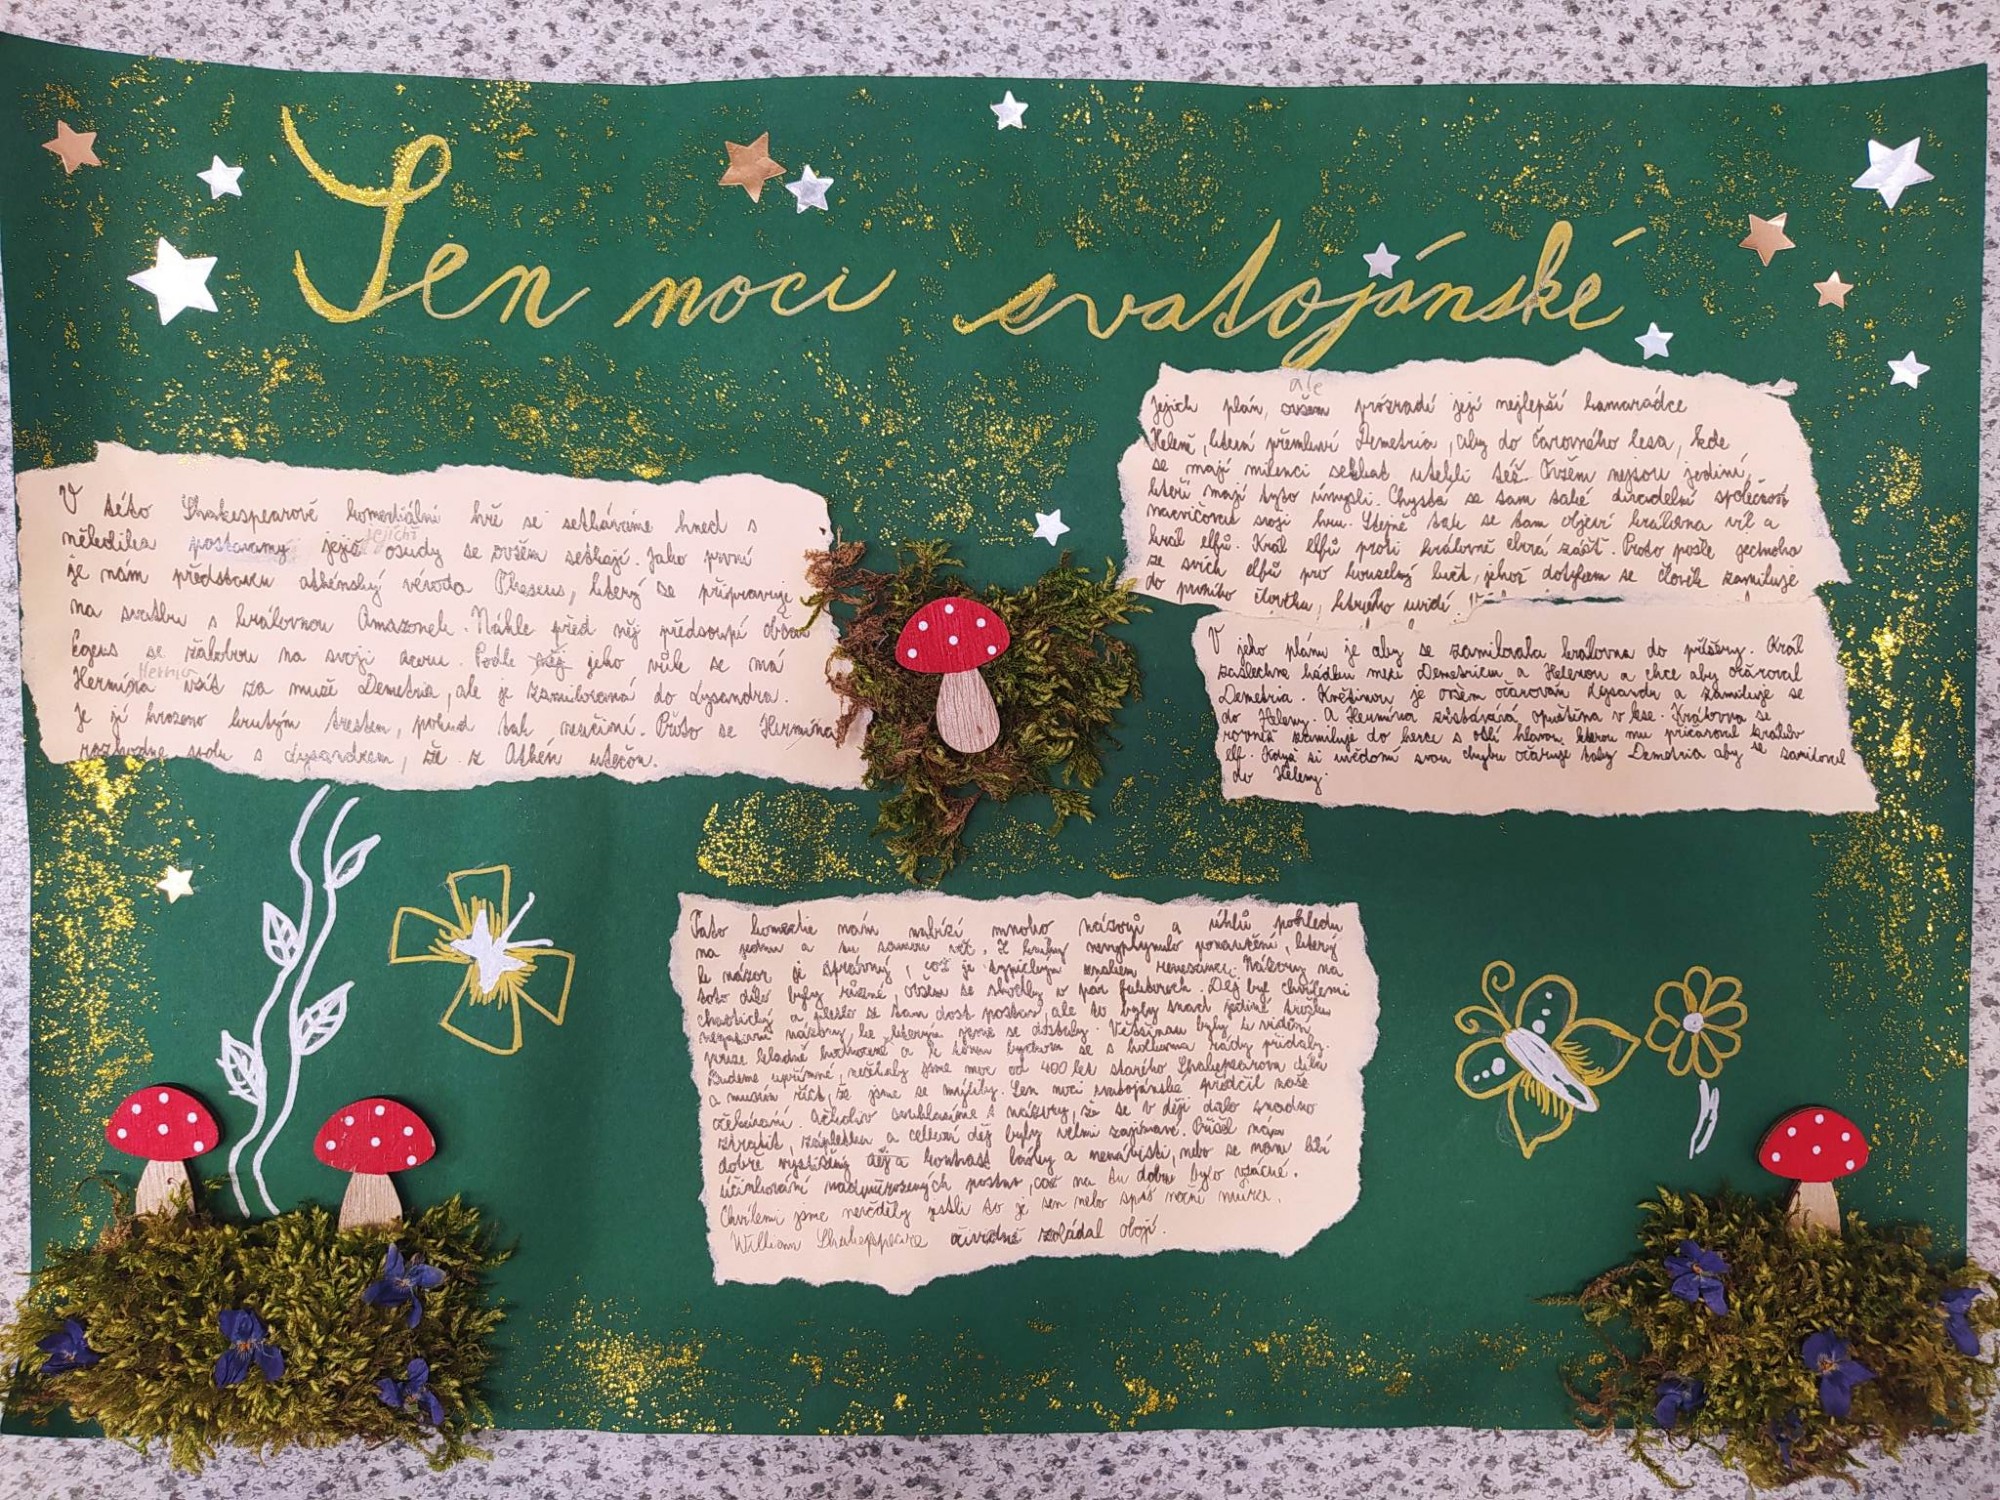 Sen noci svatojánské
V této Shakespearově komediální hře se setkáváme hned s
několika postavamy jejíž jejichž osudy se ovšem setkají. Jako první
je nám představen athénský vévoda Theseus, který se připravuje
na svatbu s královnou Amazonek. Náhle před něj předstoupí občan
Egeus se žalobou na svoji dceru. Podle jeho vůle se má
Hermia
Hermína vzít za muže Demetria, ale je zamilovaná do Lysandra.
Je jí hrozeno krutým trestem, pokud tak neučiní. Proto se Hermína
rozhodne spolu s Lysandrem, že z Athén utečou.
ale
Jejich plán, ovšem prozradí její nejlepší kamarádce
Heleně, která přemluví Demetria, aby do čarovného lesa, kde
se mají milenci setkat utekli též. Ovšem nejsou jediní,
kteří mají tyto úmysly. Chystá se tam také divadelní společnost
nacvičovat svoji hru. Stejně tak se tam objeví královna víl a
král elfů. Král elfů proti královně chová zášť. Proto pošle jednoho
ze svích elfů pro kouzelný květ, jehož dotykem se člověk zamiluje
do prvního člověka, kterého uvidí.
V jeho plánu je aby se zamilovala královna do příšery. Král
zaslechne hádku mezi Demetriem a Helenou a chce aby očaroval
Demetria. Květinou je ovšem očarován Lysandr a zamiluje se
do Heleny. A Hermína zůstává opuštěna v lese. Královna se
rovněž zamiluje do herce s oslí hlavou, kterou mu přičaroval králův
elf. Když si uvědomí svou chybu očaruje taky Demetria aby se zamiloval
do Heleny.
Tato komedie nám nabízí mnoho názorů a úhlů pohledu
na jednu a tu samou věc. Z knihy nevyplynulo ponaučení, který
názor je správný, což je typickým znakem renesance. Názory na
toto dílo byly různé, ovšem se shodly v pár faktorech. Děj byl chvílemi
chaotický a pletlo se tam dost postav, ale to byly snad jediné trošku
negativní názory, ke kterým jsme se dostaly. Většinou byly k vidění
pouze kladné hodnocení a k nim bychom se s holkama rády přidaly.
Budeme upřímné, nečekaly jsme moc od 400 let starého Shakespearova díla
a musím říct, že jsme se mýlily. Sen noci svatojánské předčil naše
očekávání. Ačkoliv souhlasíme s názory, že se v ději dalo snadno
ztratit, zápletka a celkový děj byly velmi zajímavé. Přišel nám
dobře vystižený děj a kontrast lásky a nenávisti, nebo se nám líbí
účinkování nadpřirozených postav, což na tu dobu bylo vzácné.
Chvílemi jsme nevěděly jestli to je sen nebo spíš noční můra.
William Shakespeare očividně zvládal obojí.